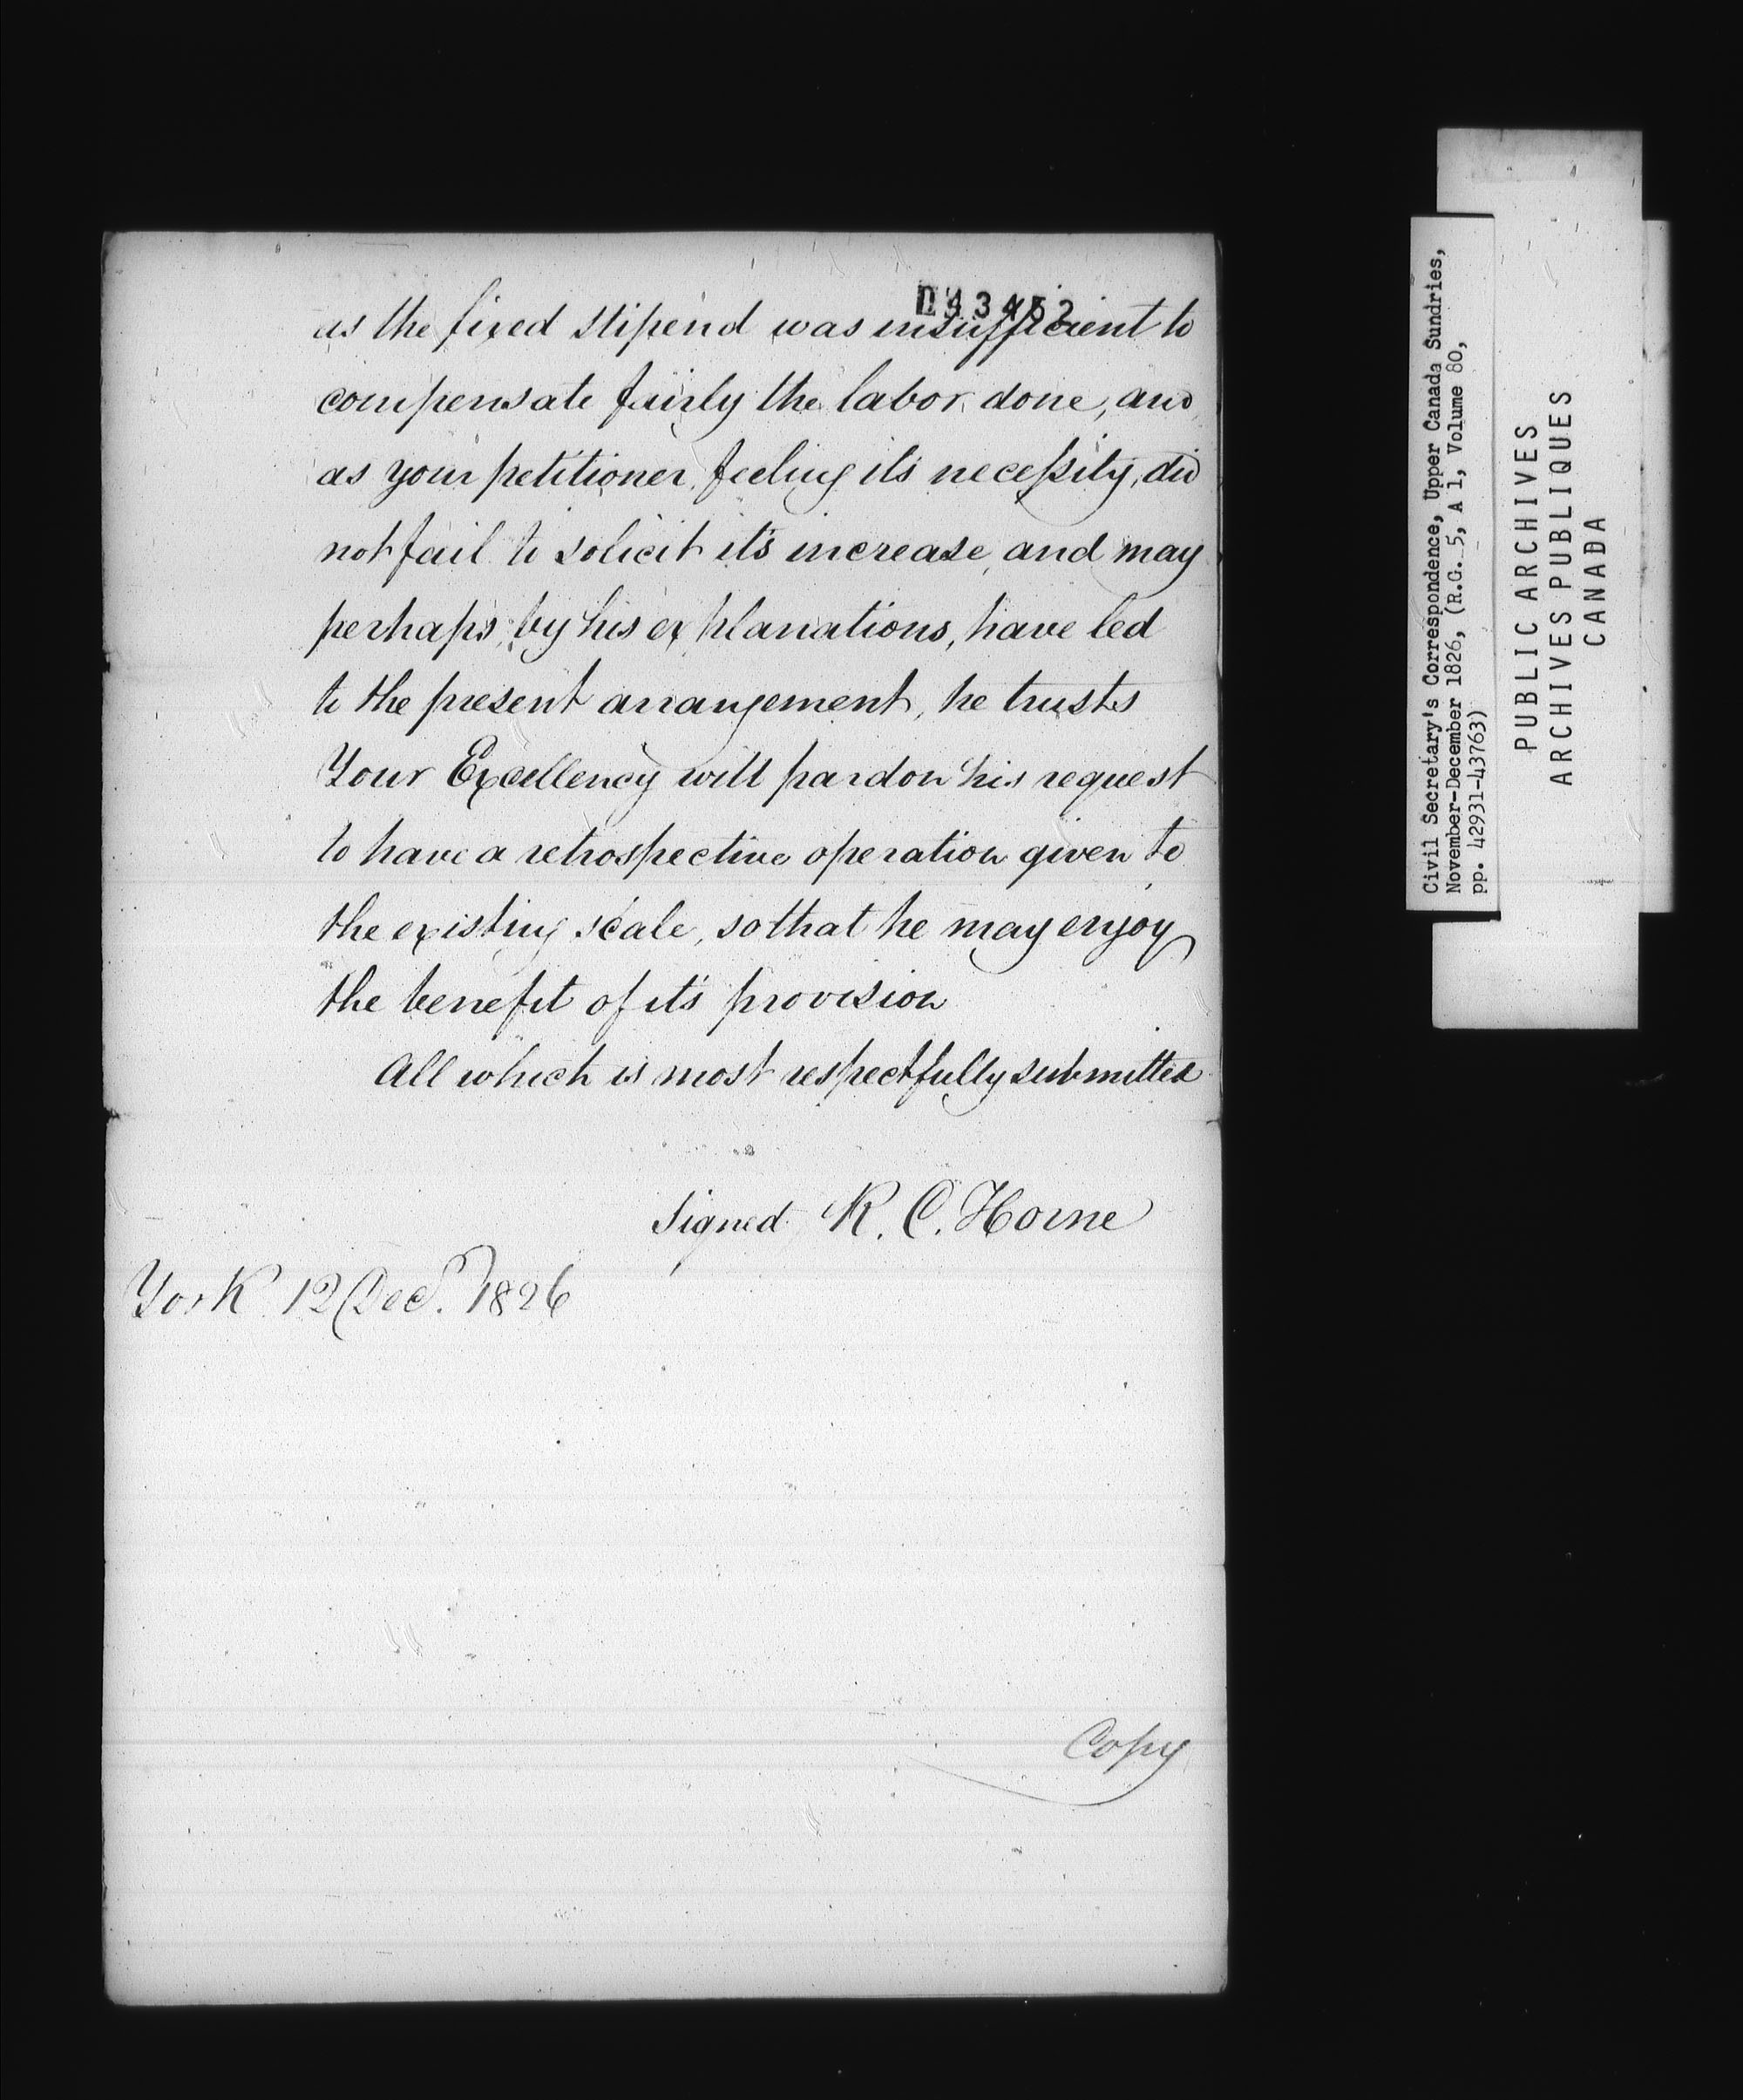 D43452
as the fixed stipend was insufficient to
compensate fairly the labor done, and
as your petitioner, feeling its necessity, did
not fail to solicit it's increase, and may
perhaps, by his explanations, have led
to the present arrangement, he trusts
Your Excellency will pardon his request
to have a retrospective operation given to
the existing scale, so that he may enjoy
the benefit of it's provision
All which is most respectfully submitted
Signed R. C. Horne
York 12 Dec.r 1826
Copy
Civil Secretary's Correspondence, Upper Canada Sundries,
November-December 1826, (R.G. 5, A 1, Volume 80,
pp. 42931-43763)
PUBLIC ARCHIVES
ARCHIVES PUBLIQUES
CANADA